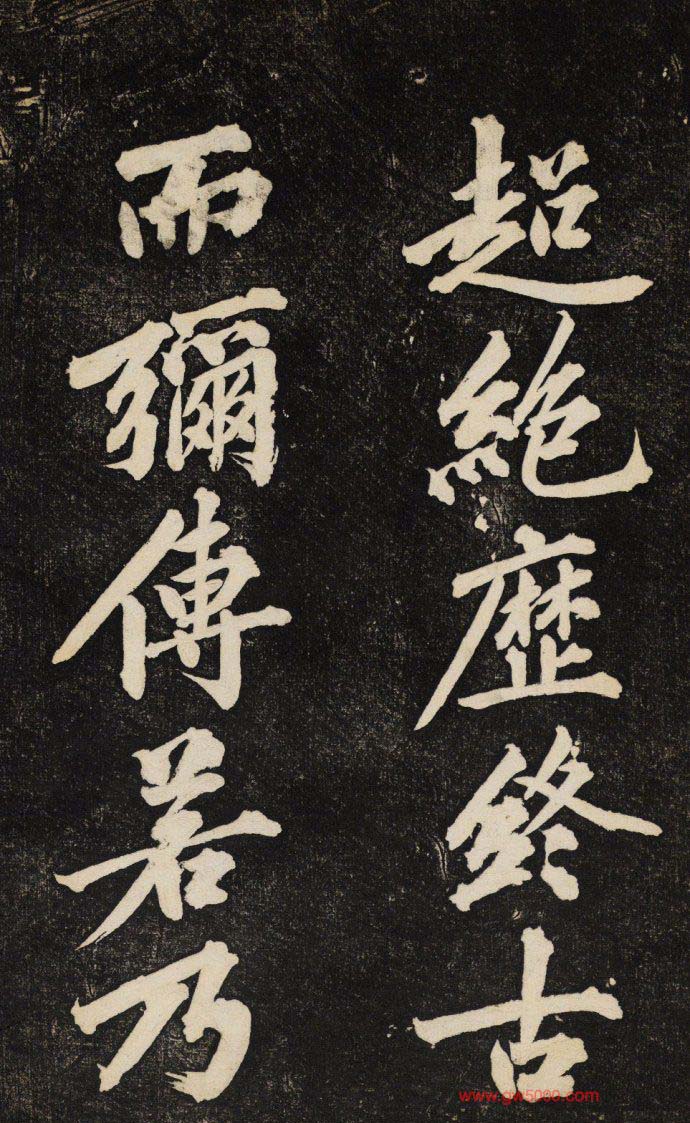 超絶歴終古
而彌傳若乃
www.gw5000.com